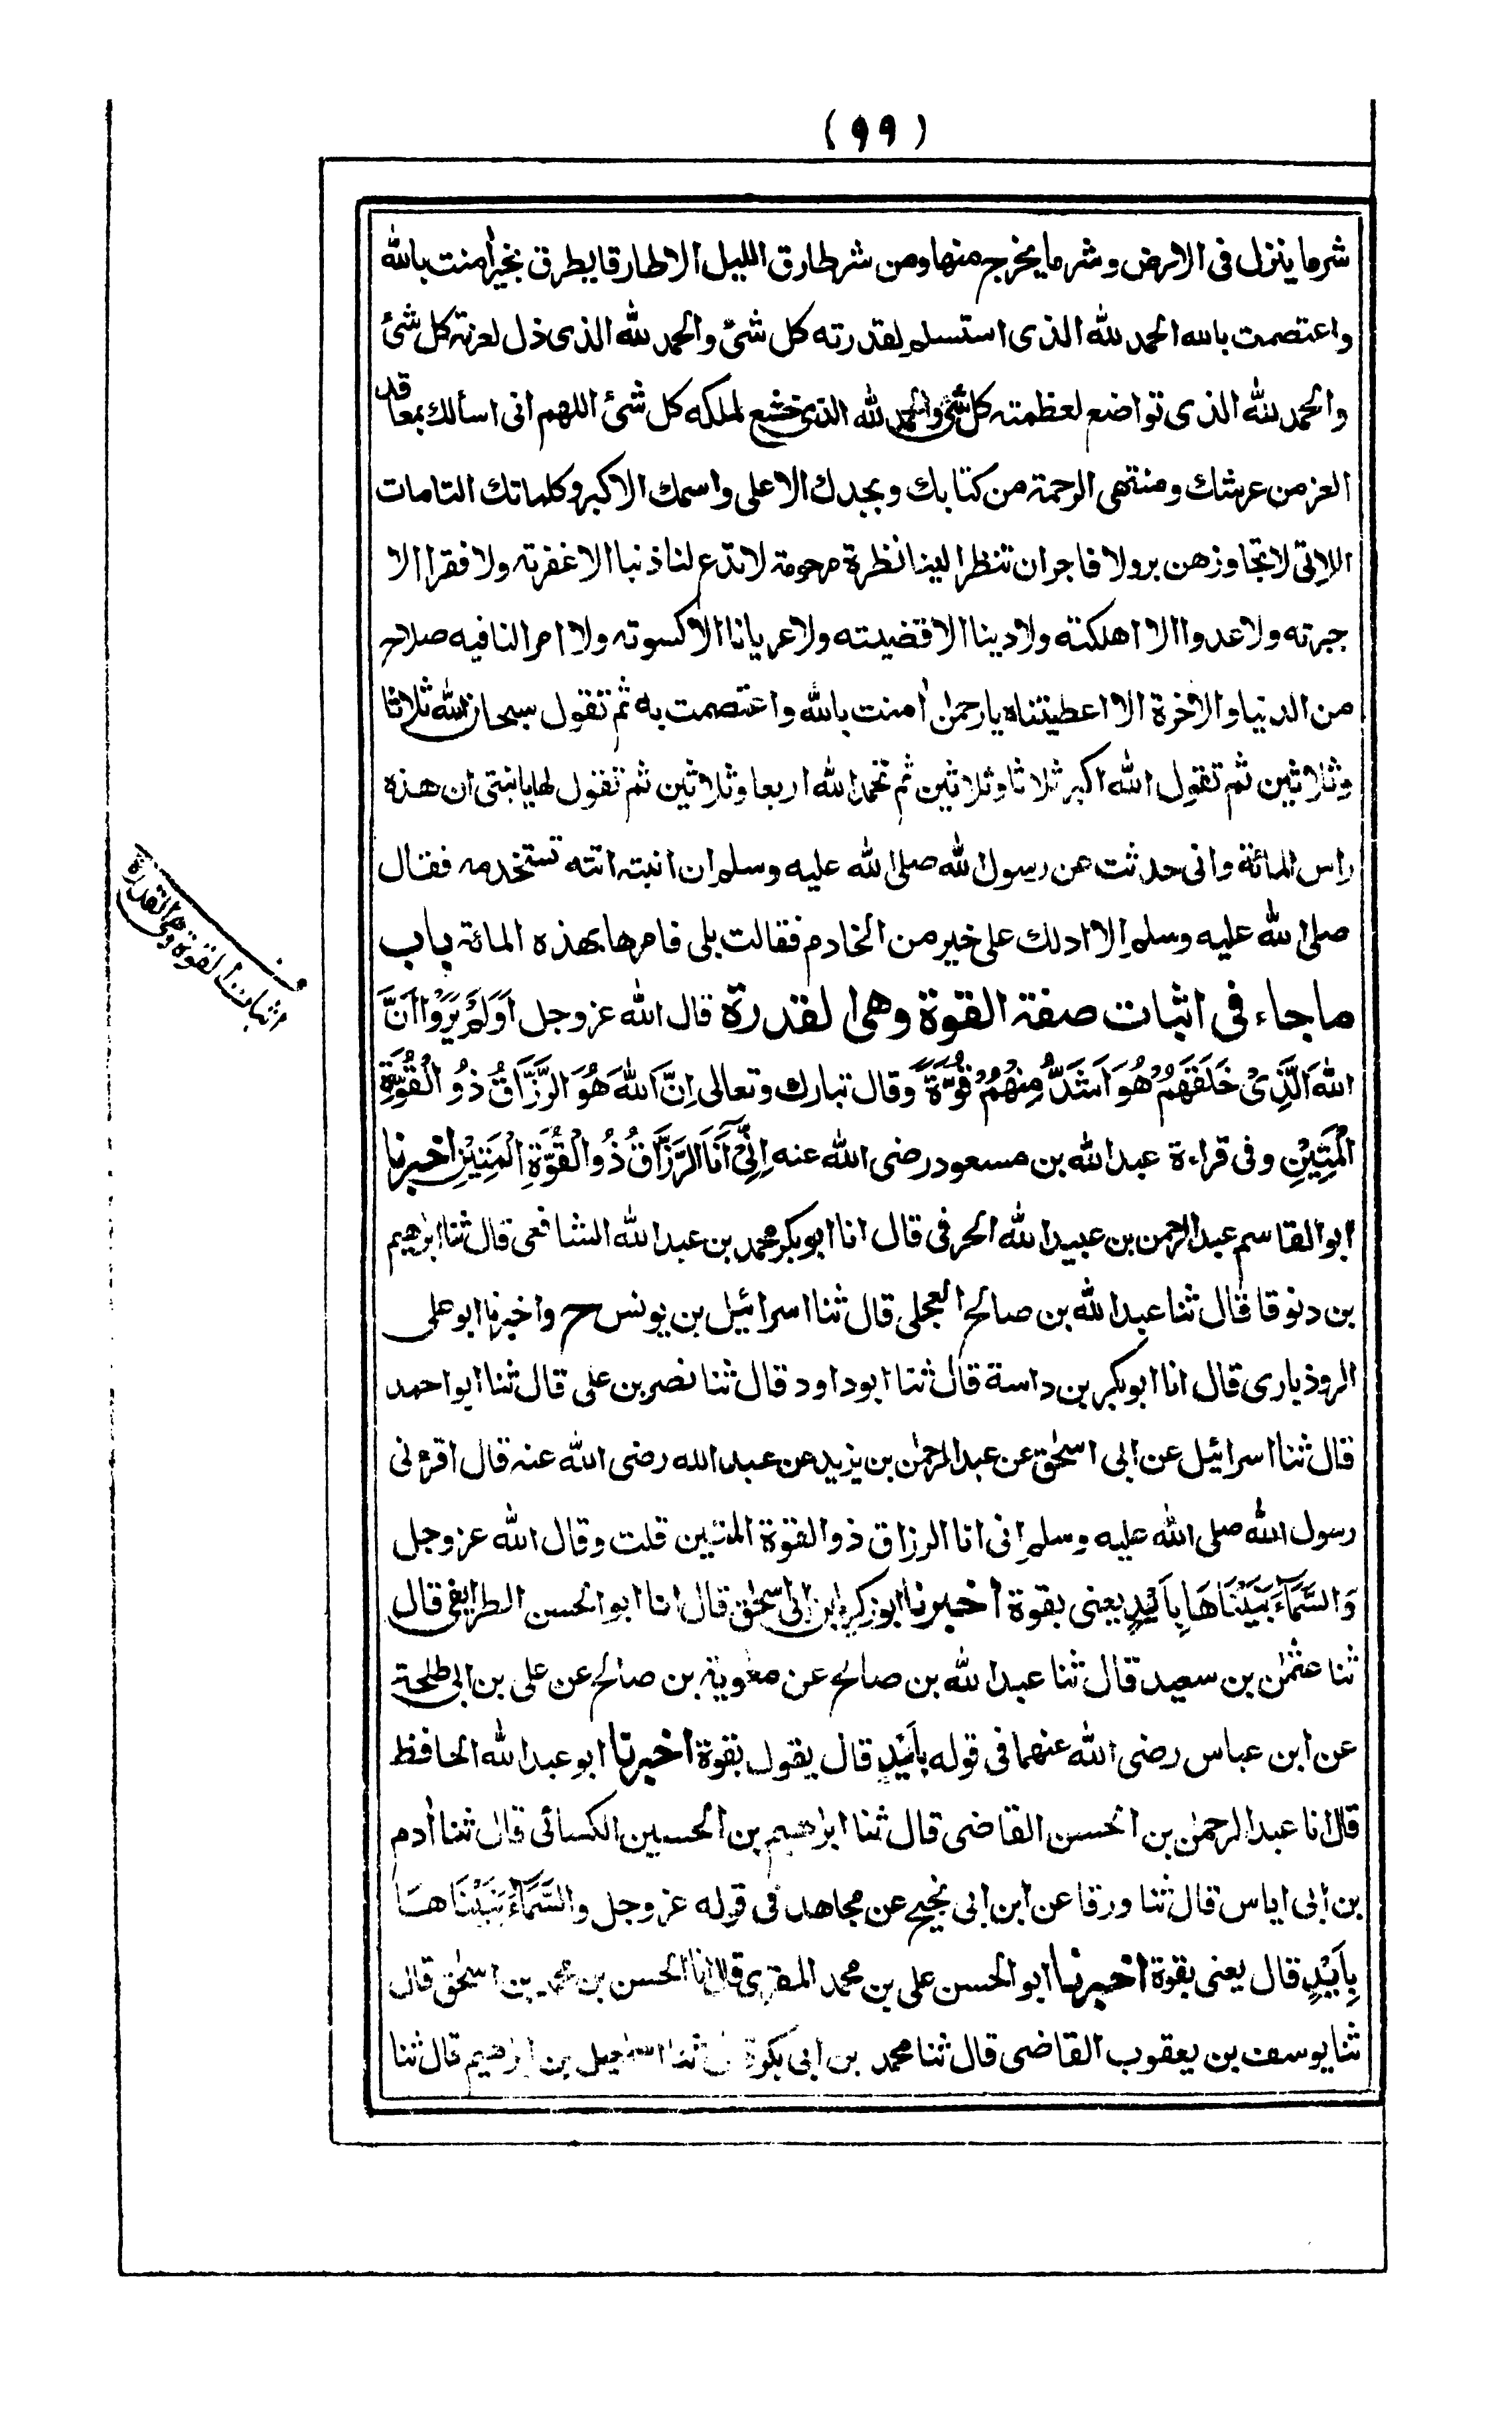 (۹۹)
شر ما ينزل فى الارض وشر ما يخرج منها ومن شر طارق الليل الا طارقا يطرق بخير اٰمنت بالله
واعتصمت بالله الحمد لله الذى استسلم لقدرته كل شئ والحمد لله الذى ذل لعزته كل شئ
والحمد لله الذى تواضع لعظمته كل شئ والحمد لله الذى خشع لملكه كل شئ اللهم انى اسألك بمعاقد
العز من عرشك ومنتهى الرحمة من كتابك وبجدك الاعلى واسمك الاكبر وكلماتك التامات
اللاتى لا تجاوزهن بر ولا فاجر ان تنظر الينا نظرة مرحومة لا تدع لنا ذنبا الا غفرته ولا فقرا الا
جبرته ولا عدوا الا اهلكته ولا دينا الا قضيته ولا عريانا الا كسوته ولا امرا لنا فيه صلاح
من الدنيا والاٰخرة الا اعطيتناه يا رحمٰن اٰمنت بالله واعتصمت به ثم تقول سبحان الله ثلاثا
وثلاثين ثم تقول الله اكبر ثلاثا وثلاثين ثم تحمد الله اربعا وثلاثين ثم تقول لها يا بنتى ان هذه
راس المائة وانى حدثت عن رسول الله صلى الله عليه وسلم ان ابنته اتته تستخدمه فقال
صلى الله عليه وسلم الا ادلك على خير من الخادم فقالت بلى فامرها بهذه المائة باب
ما جاء فى اثبات صفة القوة وهى القدرة قال الله عز وجل اَوَلَمْ يَرَوْا اَنَّ
اللهَ الَّذِىْ خَلَقَهُمْ هُوَ اَشَدُّ مِنْهُمْ قُوَّةً وقال تبارك وتعالى اِنَّ اللهَ هُوَ الرَّزَّاقُ ذُو الْقُوَّةِ
الْمَتِيْنِ وفى قراءة عبد الله بن مسعود رضى الله عنه اِنِّىْ اَنَا الرَّزَّاقُ ذُو الْقُوَّةِ الْمَتِيْنِ اخبرنا
ابو القاسم عبد الرحمن بن عبيد الله الحرفى قال انا ابو بكر محمد بن عبد الله الشافعى قال ثنا ابرٰهيم
بن دنوقا قال ثنا عبد الله بن صالح العجلى قال ثنا اسرائيل بن يونس ح واخبرنا ابو على
الروذبارى قال انا ابو بكر بن داسة قال ثنا ابو داود قال ثنا نصر بن على قال ثنا ابو احمد
قال ثنا اسرائيل عن ابى اسحٰق عن عبد الرحمٰن بن يزيد عن عبد الله رضى الله عنه قال اقرئنى
رسول الله صلى الله عليه وسلم انى انا الرزاق ذو القوة المتين قلت وقال الله عز وجل
وَالسَّمَآءَ بَنَيْنَاهَا بِاَيْدٍ يعنى بقوة اخبرنا ابو زكريا بن ابى اسحٰق قال انا ابو الحسن الطرايفى قال
ثنا عثمٰن بن سعيد قال ثنا عبد الله بن صالح عن معٰوية بن صالح عن على بن ابى طلحة
عن ابن عباس رضى الله عنهما فى قوله بِاَيْدٍ قال يقول بقوة اخبرنا ابو عبد الله الحافظ
قال انا عبد الرحمٰن بن الحسن القاضى قال ثنا ابرٰهيم بن الحسين الكسائى قال ثنا اٰدم
بن ابى اياس قال ثنا ورقا عن ابن ابى نجيح عن مجاهد فى قوله عز وجل والسَّمَآءَ بَنَيْنَاهَا
بِاَيْدٍ قال يعنى بقوة اخبرنا ابو الحسن على بن محمد المقرى قال انا الحسن بن محمد بن اسحٰق قال
ثنا يوسف بن يعقوب القاضى قال ثنا محمد بن ابى بكر ثنا اسمٰعيل بن ابرٰهيم قال ثنا
اثبات القوة وهى القدرة